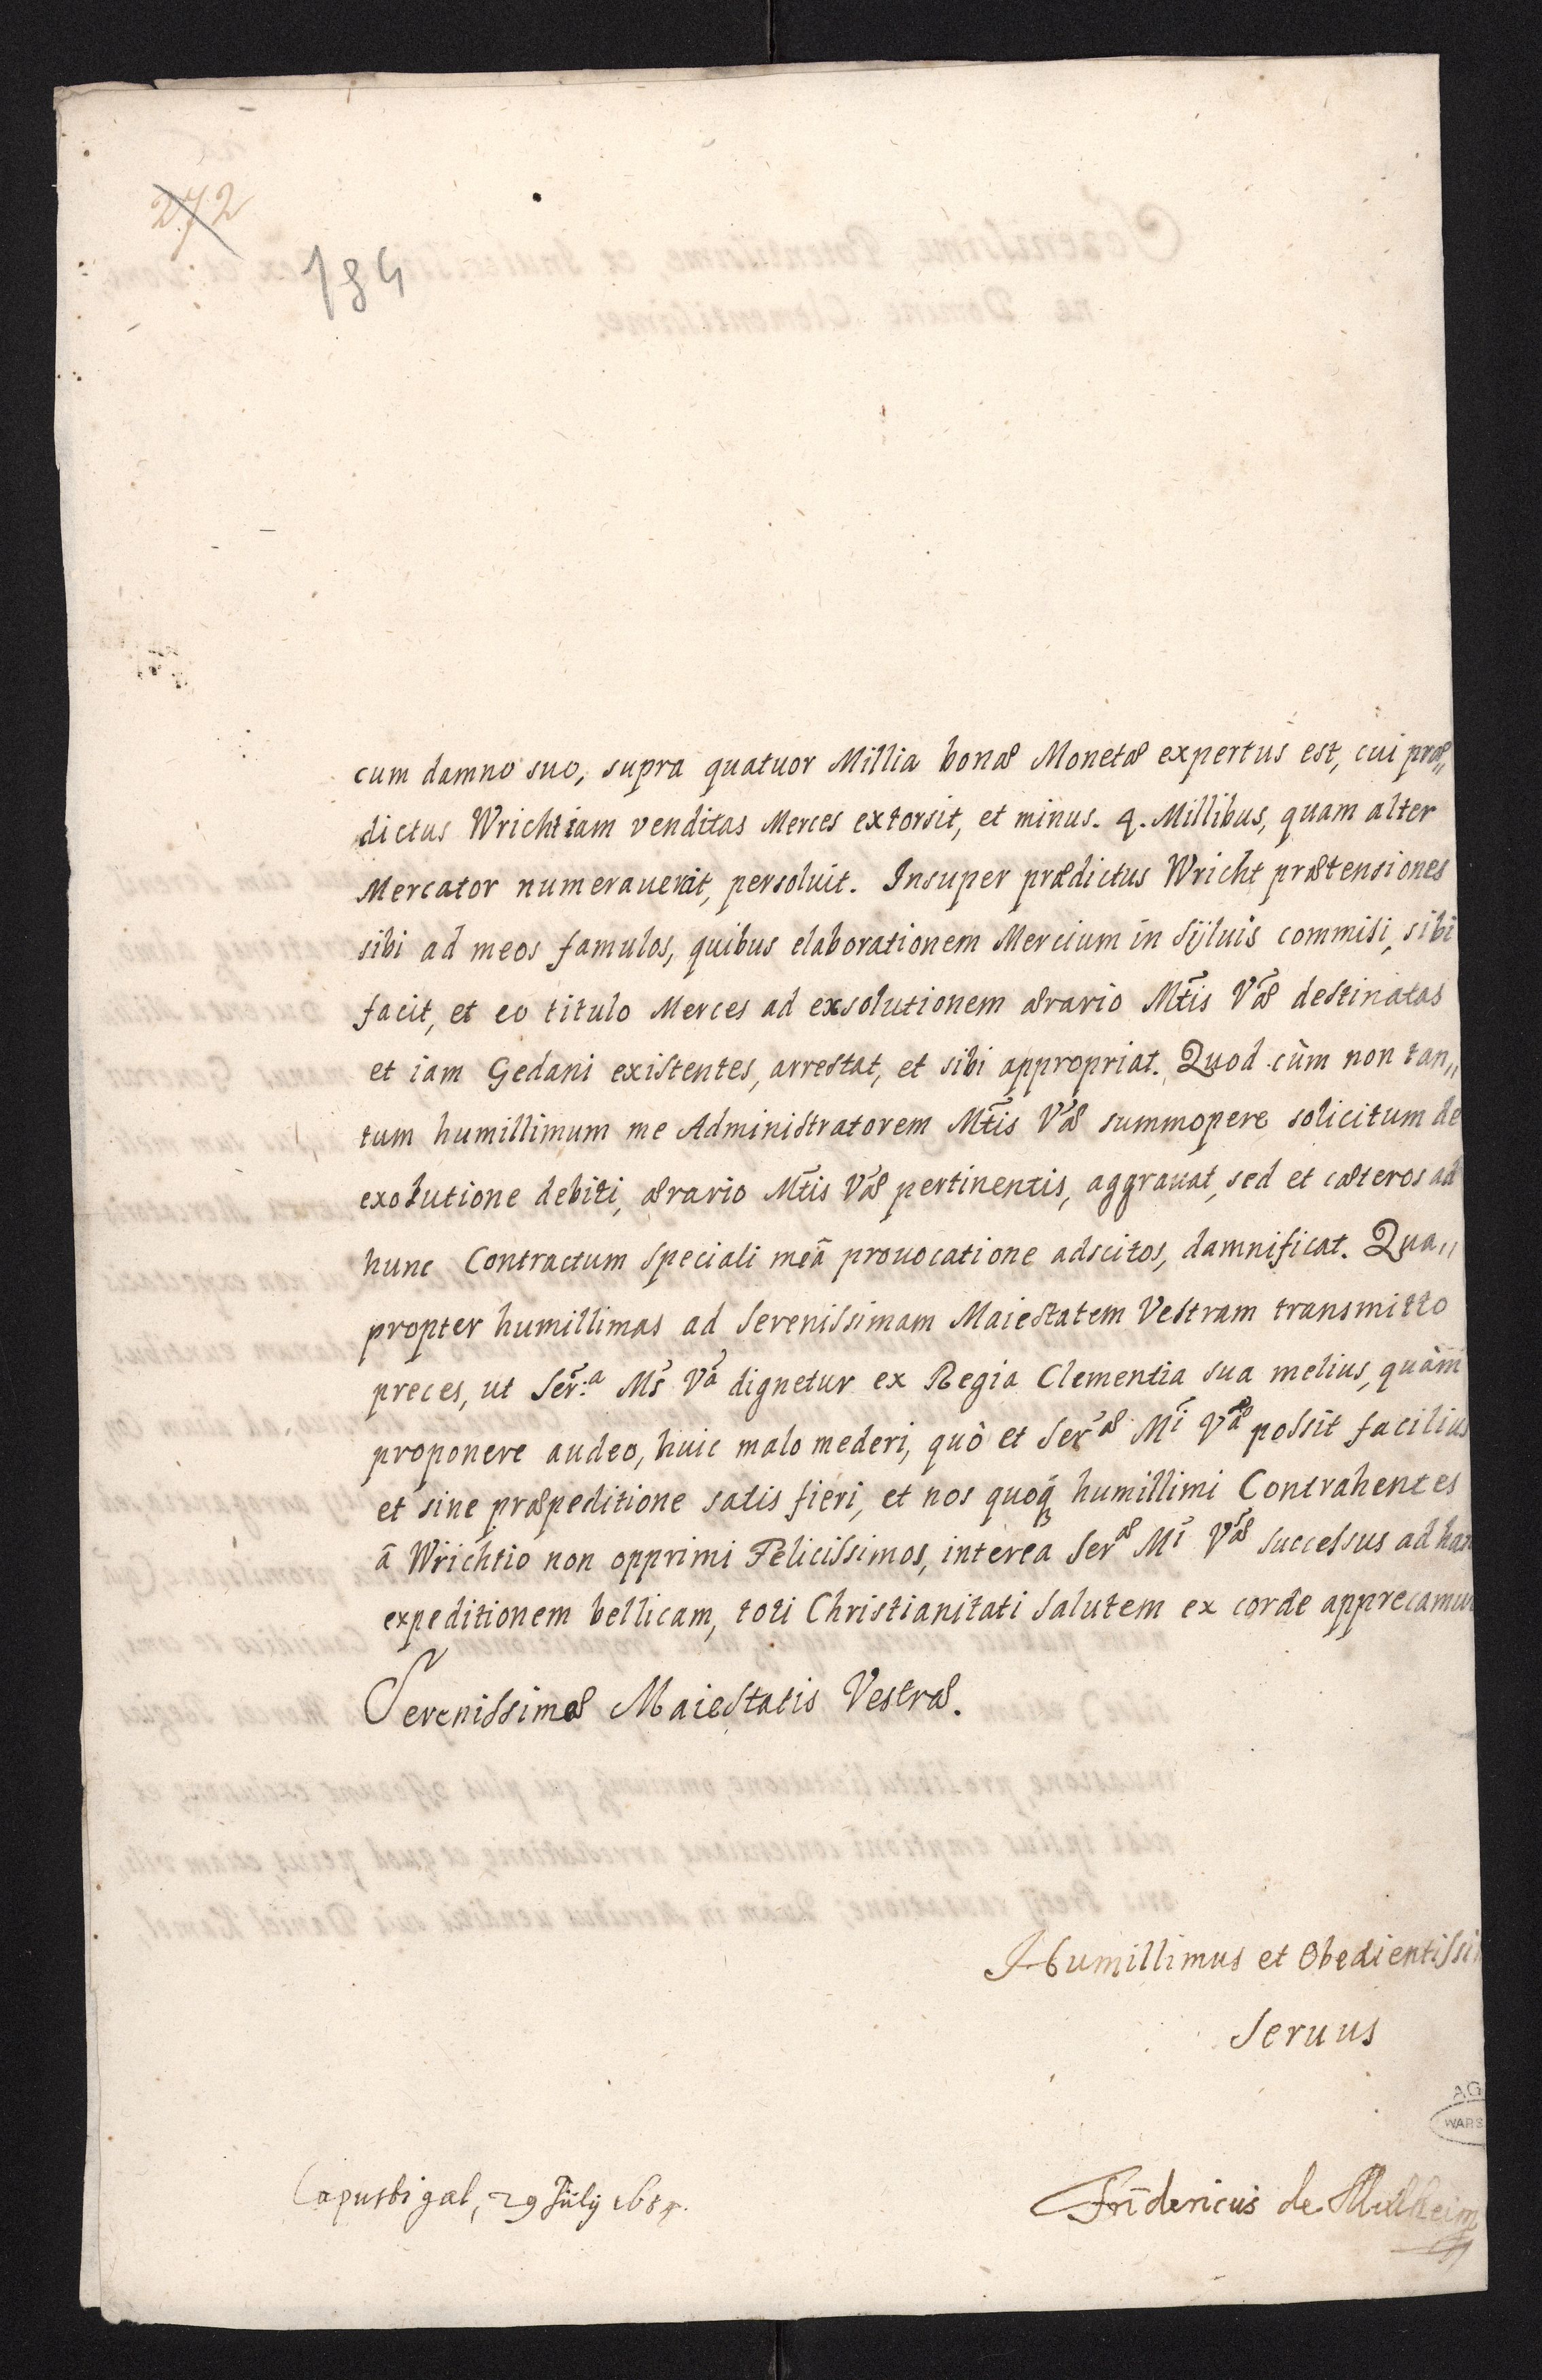 272
184
cum damno suo, supra quatuor Millia bonæ Monetæ expertus est, cui præ„
dictus Wricht iam venditas Merces extorsit, et minus. 4. Millibus, quam alter
Mercator numerauerit, persoluit. Insuper prædictus Wricht prætensiones
sibi ad meos famulos, quibus elaborationem Mercium in Sÿluis commisi, sibi
facit, et eo titulo Merces ad exsolutionem ærario Mtis Væ destinatas
et iam Gedani existentes, arrestat, et sibi appropriat. Quod cùm non tan„
tum humillimum me Administratorem Mtis Væ summopere solicitum de
exolutione debiti, ærario Mtis Væ pertinentis, aggrauat, sed et cæteros ad
hunc Contractum speciali meâ prouocatione adscitos, damnificat. Qua„
propter humillimas ad Serenissimam Maiestatem Vestram transmitto
preces, ut Ser:a Ms Va dignetur ex Regia Clementia sua melius, quàm
proponere audeo, huic malo mederi, quò et Seræ Mi Væ possit facilius
et sine præpeditione satis fieri, et nos quoq3 humillimi Contrahentes
â Wrichtio non opprimi Felicissimos, interea Seræ Mi Væ successus ad han
expeditionem bellicam, toti Christianitati Salutem ex corde apprecamur
Serenissimæ Maiestatis Vestræ.
Humillimus et Obedientissi
Seruus
AG
WARS
Capustigal, 29 Julÿ
Fridericus de